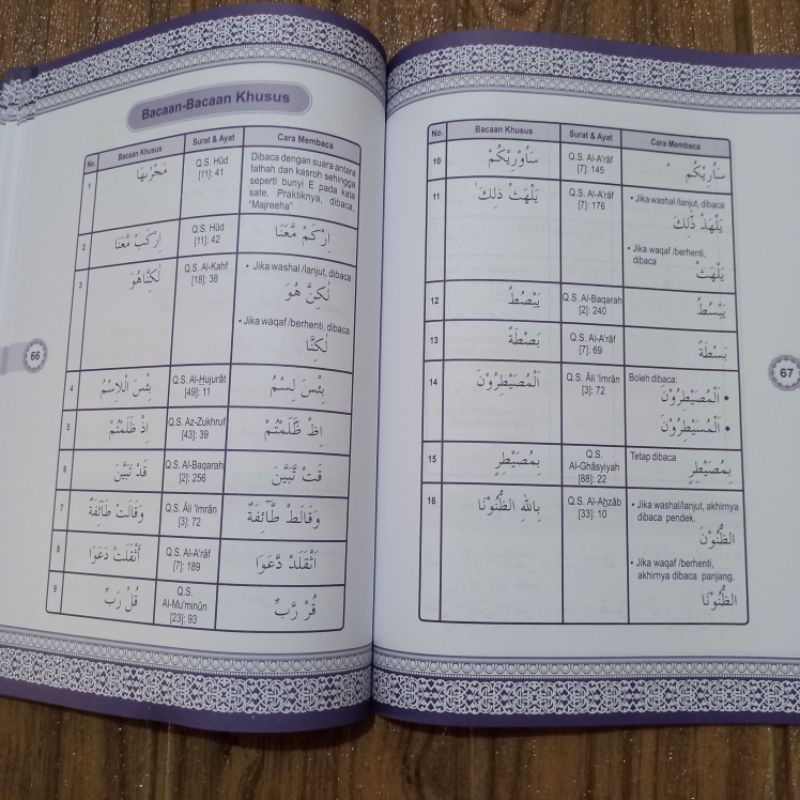 Bacaan-Bacaan Khusus
No. Bacaan Khusus Surat & Ayat Cara Membaca
1 مَجْرٰىهَا Q.S. Hûd [11]: 41 Dibaca dengan suara antara
fathah dan kasroh sehingga
seperti bunyi E pada kata
sate. Praktiknya, dibaca,
"Majreeha"
2 اِرْكَبْ مَّعَنَا Q.S. Hûd [11]: 42 اِرْكَمْ مَّعَنَا
3 لٰكِنَّا۠هُوَ Q.S. Al-Kahf [18]: 38 • Jika washal /lanjut, dibaca
لٰكِنَّ هُوَ
• Jika waqaf /berhenti, dibaca
لٰكِنَّا
4 بِئْسَ الْاِسْمُ Q.S. Al-Hujurât [49]: 11 بِئْسَ لِسْمُ
5 اِذْ ظَلَمْتُمْ Q.S. Az-Zukhruf [43]: 39 اِظْ ظَّلَمْتُمْ
6 قَدْ تَبَيَّنَ Q.S. Al-Baqarah [2]: 256 قَتْ تَّبَيَّنَ
7 وَقَالَتْ طَآئِفَةٌ Q.S. Âli 'Imrân [3]: 72 وَقَالَطْ طَّآئِفَةٌ
8 أَثْقَلَتْ دَعَوَا Q.S. Al-A'râf [7]: 189 أَثْقَلَدْ دَّعَوَا
9 قُلْ رَبِّ Q.S. Al-Mu'minûn [23]: 93 قُرْ رَّبِّ
66
No. Bacaan Khusus Surat & Ayat Cara Membaca
10 سَاُورِيْكُمْ Q.S. Al-A'râf [7]: 145 سَاُرِيْكُمْ
11 يَلْهَثْ ذٰلِكَ Q.S. Al-A'râf [7]: 176 • Jika washal/lanjut, dibaca
يَلْهَذْ ذّٰلِكَ
• Jika waqaf /berhenti,
dibaca
يَلْهَثْ
12 يَبْصُطُ Q.S. Al-Baqarah [2]: 240 يَبْسُطُ
13 بَصْطَةً Q.S. Al-A'râf [7]: 69 بَسْطَةً
14 اَلْمُصَيْطِرُوْنَ Q.S. Âli 'Imrân [3]: 72 Boleh dibaca:
• اَلْمُصَيْطِرُوْنَ
• اَلْمُسَيْطِرُوْنَ
15 بِمُصَيْطِرٍ Q.S. Al-Ghâsyiyah [88]: 22 Tetap dibaca
بِمُصَيْطِرٍ
16 بِاللهِ الظُّنُوْنَا Q.S. Al-Ahzâb [33]: 10 • Jika washal/lanjut, akhirnya
dibaca pendek.
الظُّنُوْنَ
• Jika waqaf /berhenti,
akhirnya dibaca panjang.
الظُّنُوْنَا
67